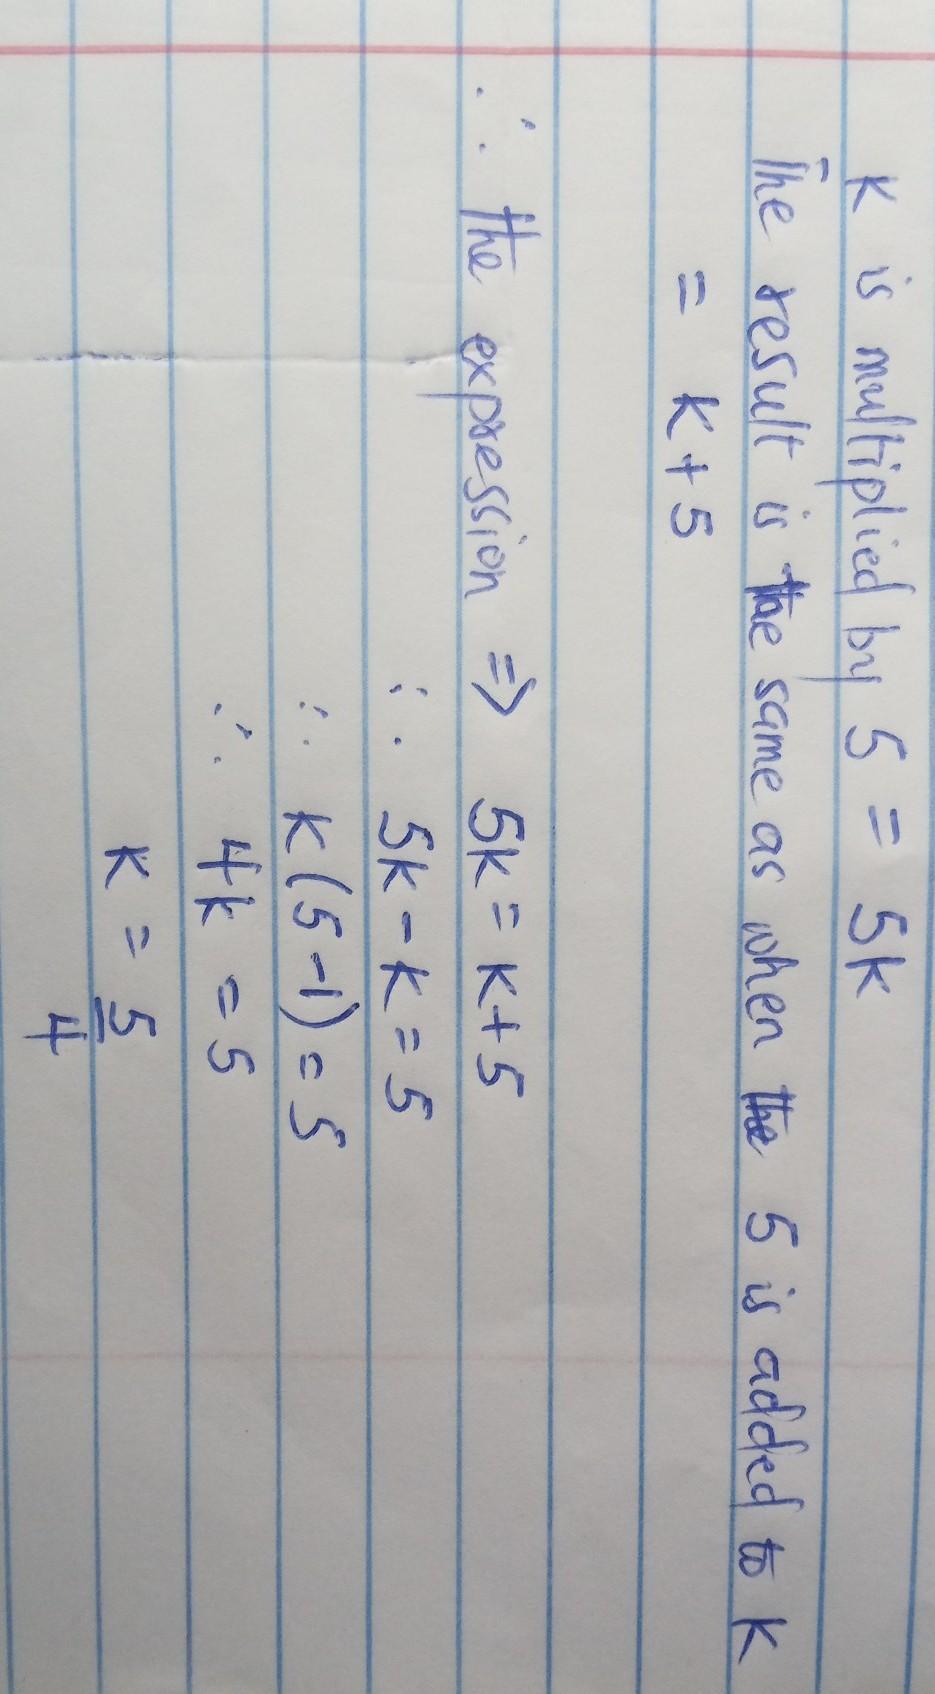 K is multiplied by 5 = 5K
The result is the same as when the 5 is added to K
= K + 5
∴ the expression ⇒ 5K = K + 5
∴ 5K - K = 5
∴ K (5 - 1) = 5
∴ 4K = 5
K = 5/4